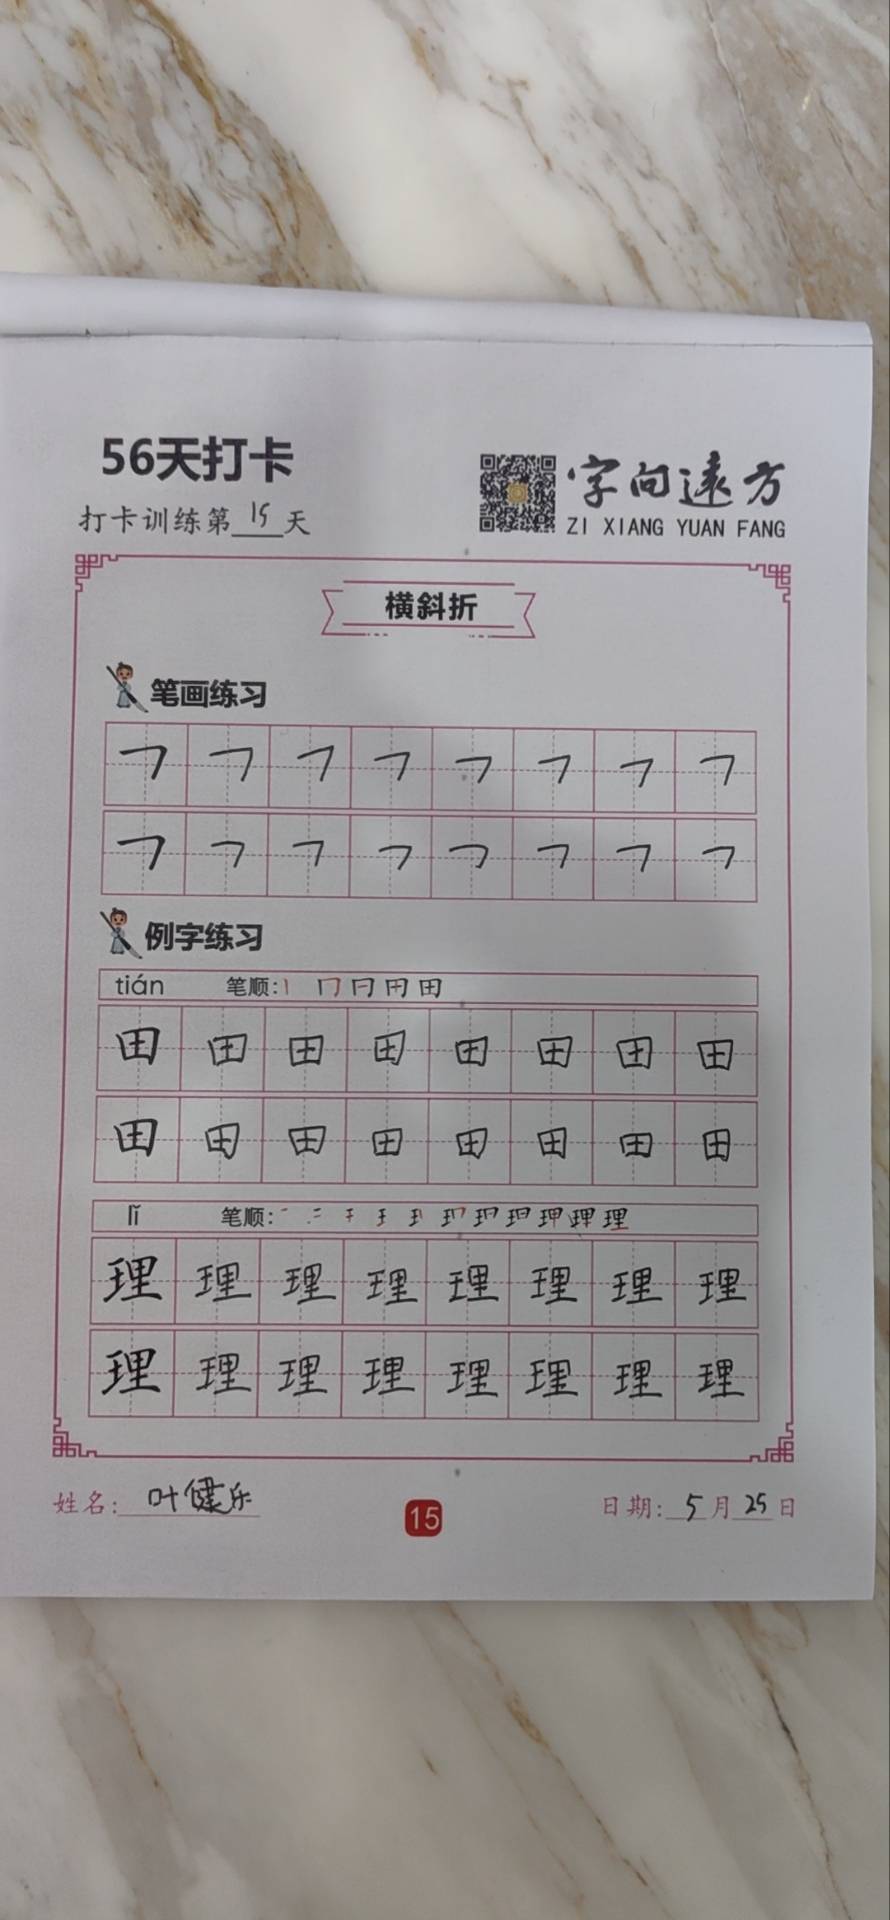 56天打卡
打卡训练第15天
字向遠方
ZI XIANG YUAN FANG
横斜折
笔画练习
㇇ ㇇ ㇇ ㇇ ㇇ ㇇ ㇇ ㇇
㇇ ㇇ ㇇ ㇇ ㇇ ㇇ ㇇ ㇇
例字练习
tián 笔顺:
田 田 田 田 田 田 田 田
田 田 田 田 田 田 田 田
lǐ 笔顺:
理 理 理 理 理 理 理 理
理 理 理 理 理 理 理 理
姓名:叶健乐
15
日期:5月25日